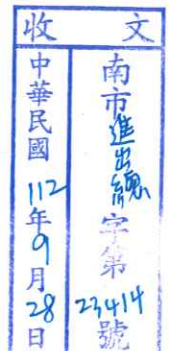 收文
南市進出總字第23414號
中華民國112年9月28日